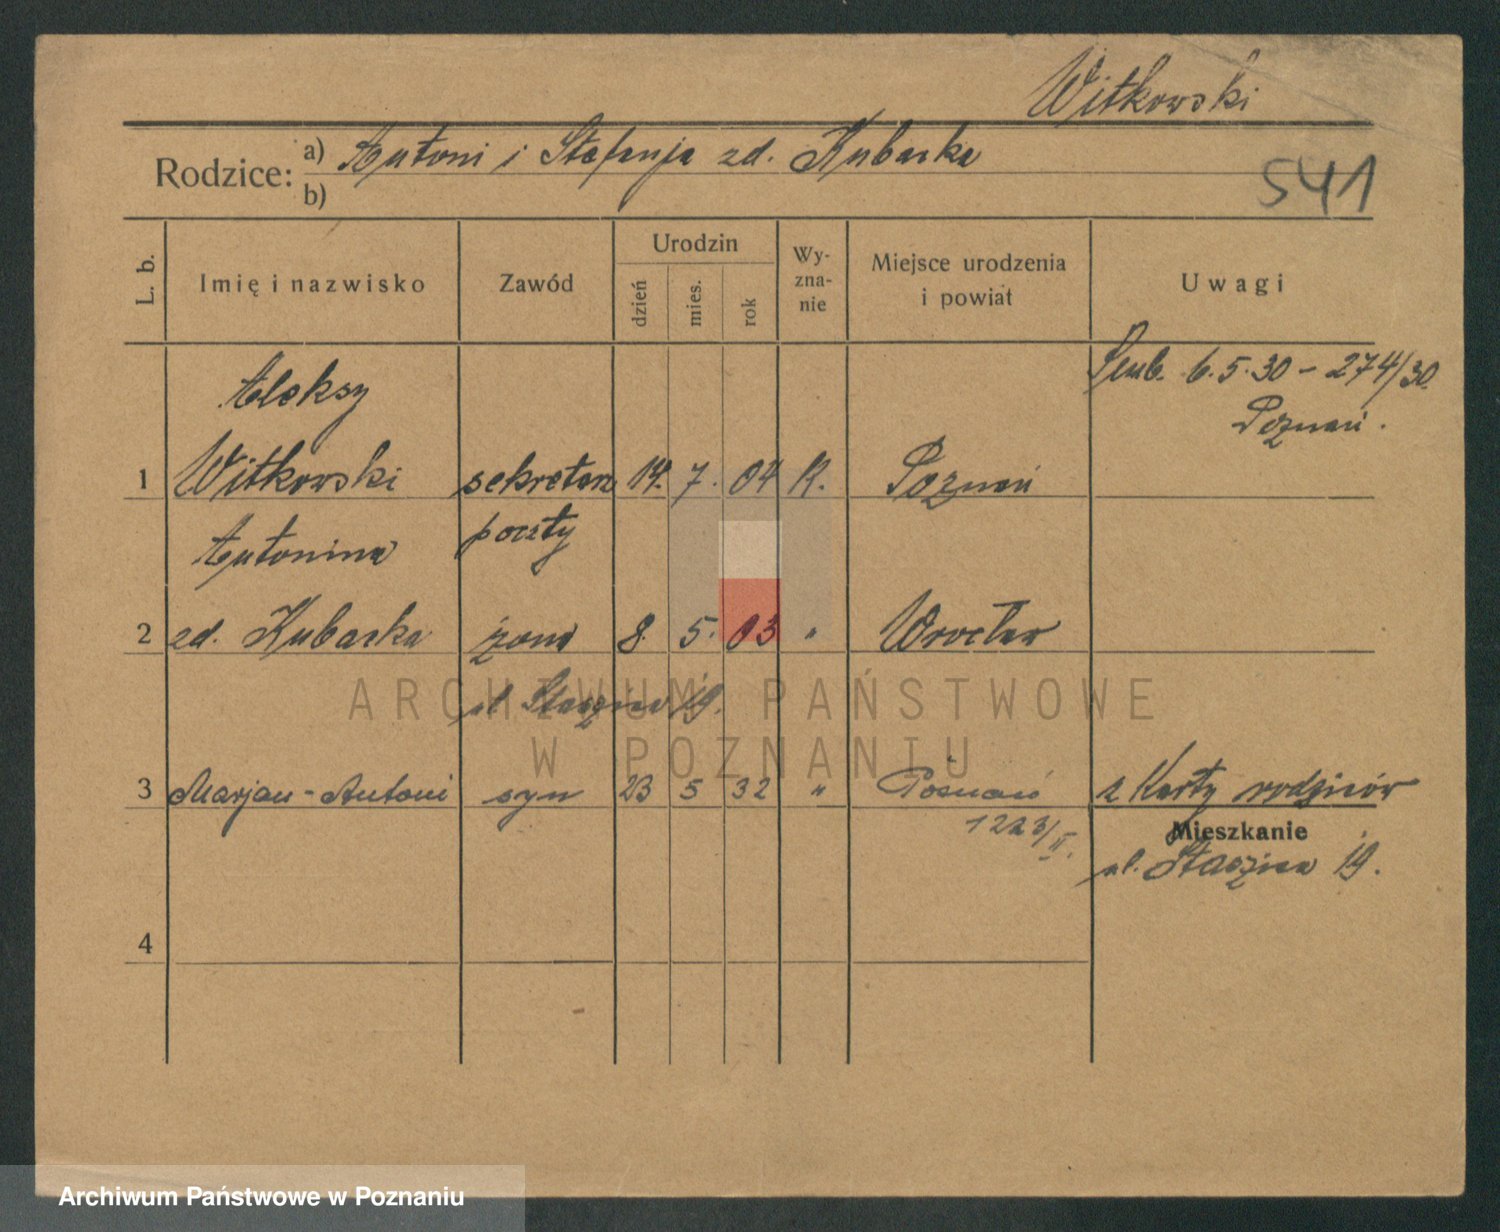 Witkowski
Rodzice: a) Antoni i Stefanja zd. Kubacka
b)
541
L. b.
Imię i nazwisko
Zawód
Urodzin
dzień
mies.
rok
Wy-
zna-
nie
Miejsce urodzenia
i powiat
Uwagi
Aleksy
1 Witkowski sekretarz 14. 7. 04 K. Poznań
poczty
6.5.30 – 274/30.
Poznań.
Antonina
2 zd. Kubacka żona 8. 5. 03 " Wrocław
ul. Staszica 19.
3 Marjan-Antoni syn 23 5 32 " Poznań z Karty rodziców
1223/II.
Mieszkanie
ul. Staszica 19.
4
ARCHIWUM PAŃSTWOWE
W POZNANIU
Archiwum Państwowe w Poznaniu